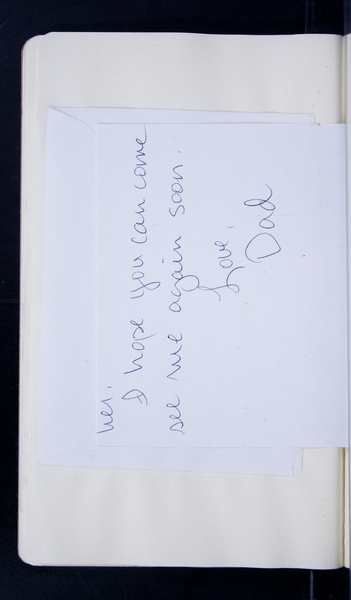 her.
I hope you can come
see me again soon.
Love,
Dad